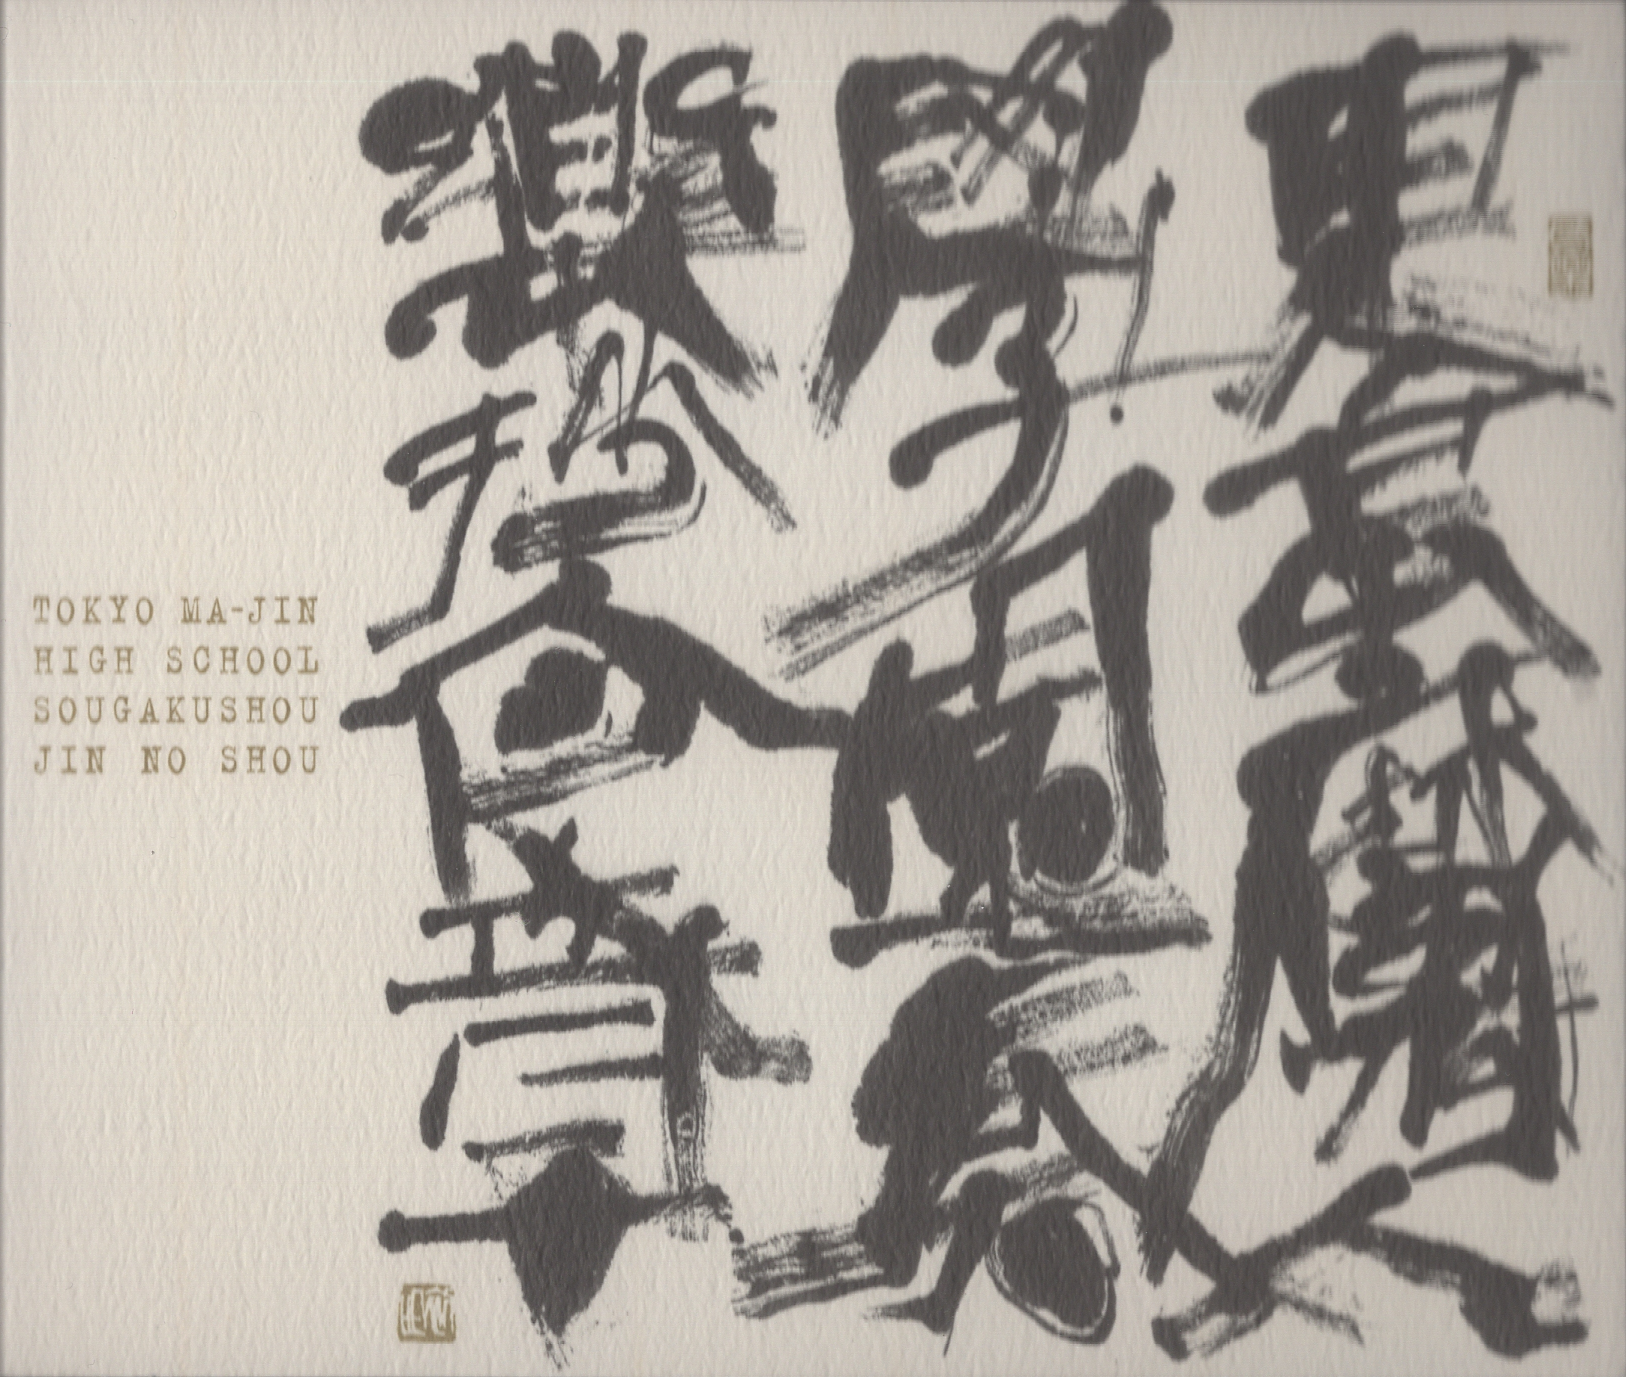 東京魔人
學園奏
樂抄 章
TOKYO MA-JIN
HIGH SCHOOL
SOUGAKUSHOU
JIN NO SHOU